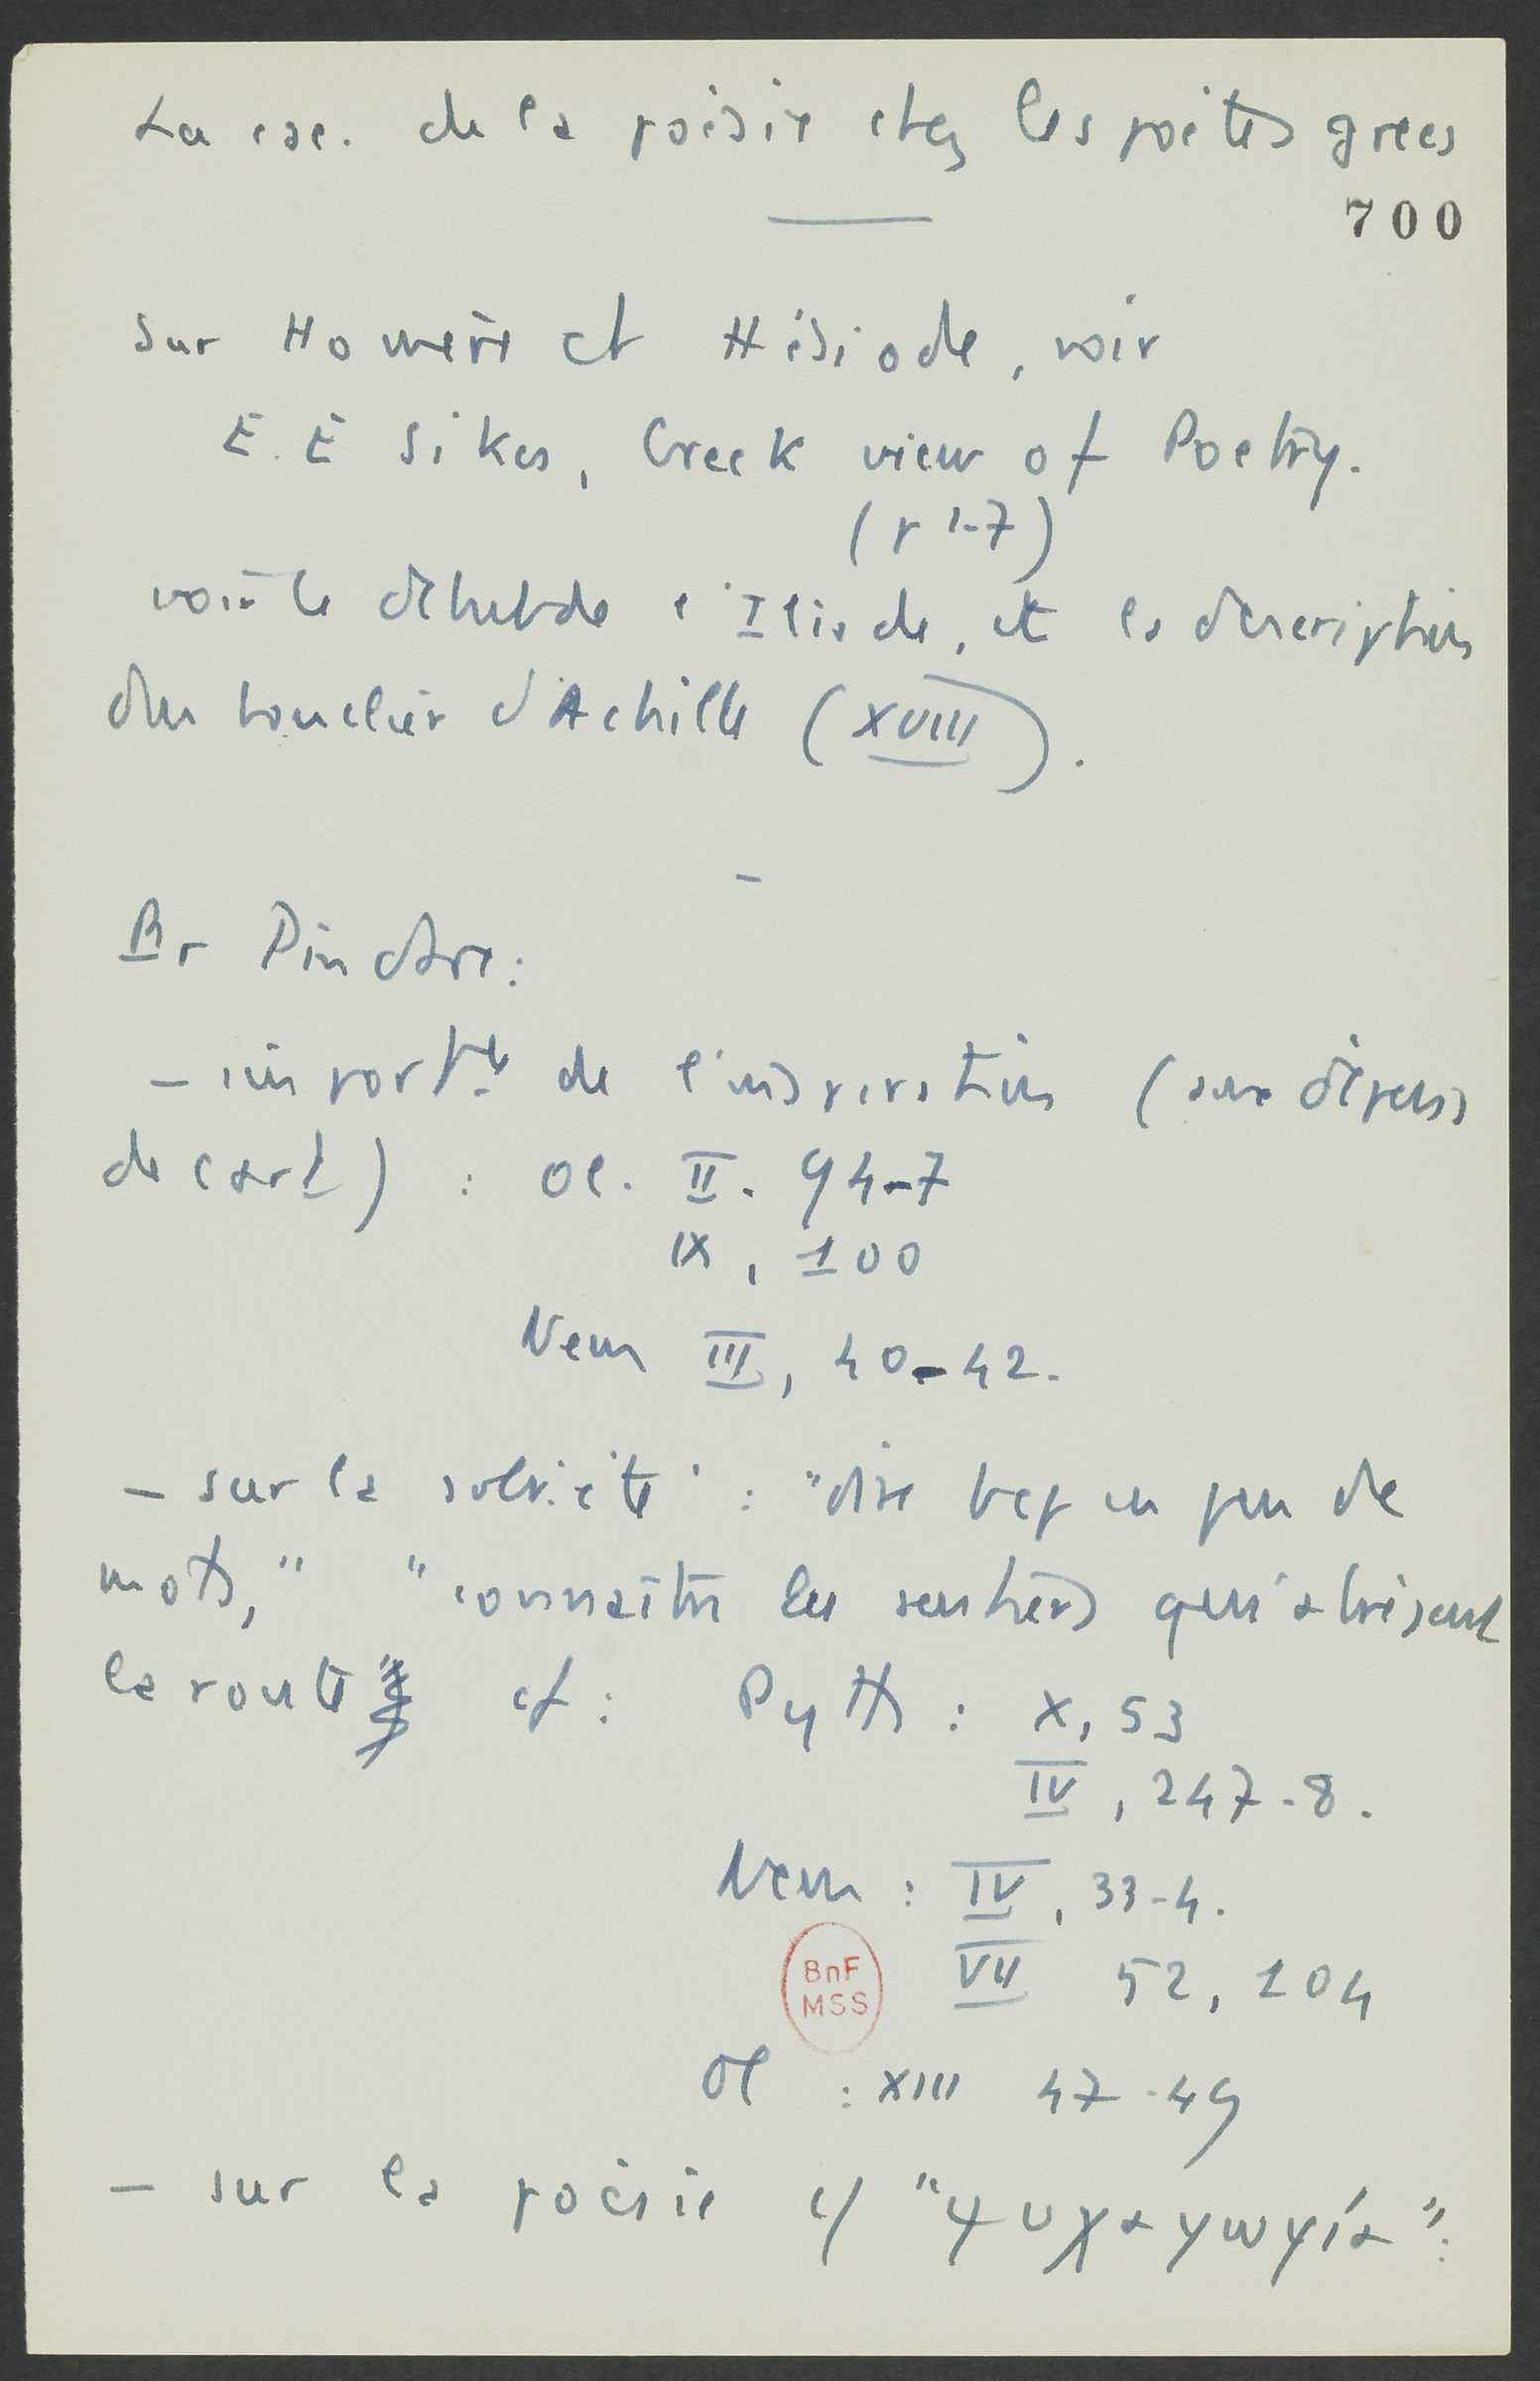 La csc. de la poésie chez les poètes grecs
700
Sur Homère et Hésiode, voir
E. E Sikes, Greek view of Poetry.
(p 1-7)
voir le début de l'Iliade, et la description
du bouclier d'Achille (XVIII).
—
Pr Pindare :
— importce de l'inspiration (aux dépens
de l'art) : Ol. II. 94-7
IX, 100
Nem III, 40-42.
— sur la sobriété : "dire bcp en peu de
mots," "connaître les sentiers qui abrègent
la route" cf : Pyth : X, 53
IV, 247-8.
Nem : IV, 33-4.
BnF
MSS
VII 52, 104
Ol : XIII 47-49
— sur la poésie c/ "ψυχαγωγία" :